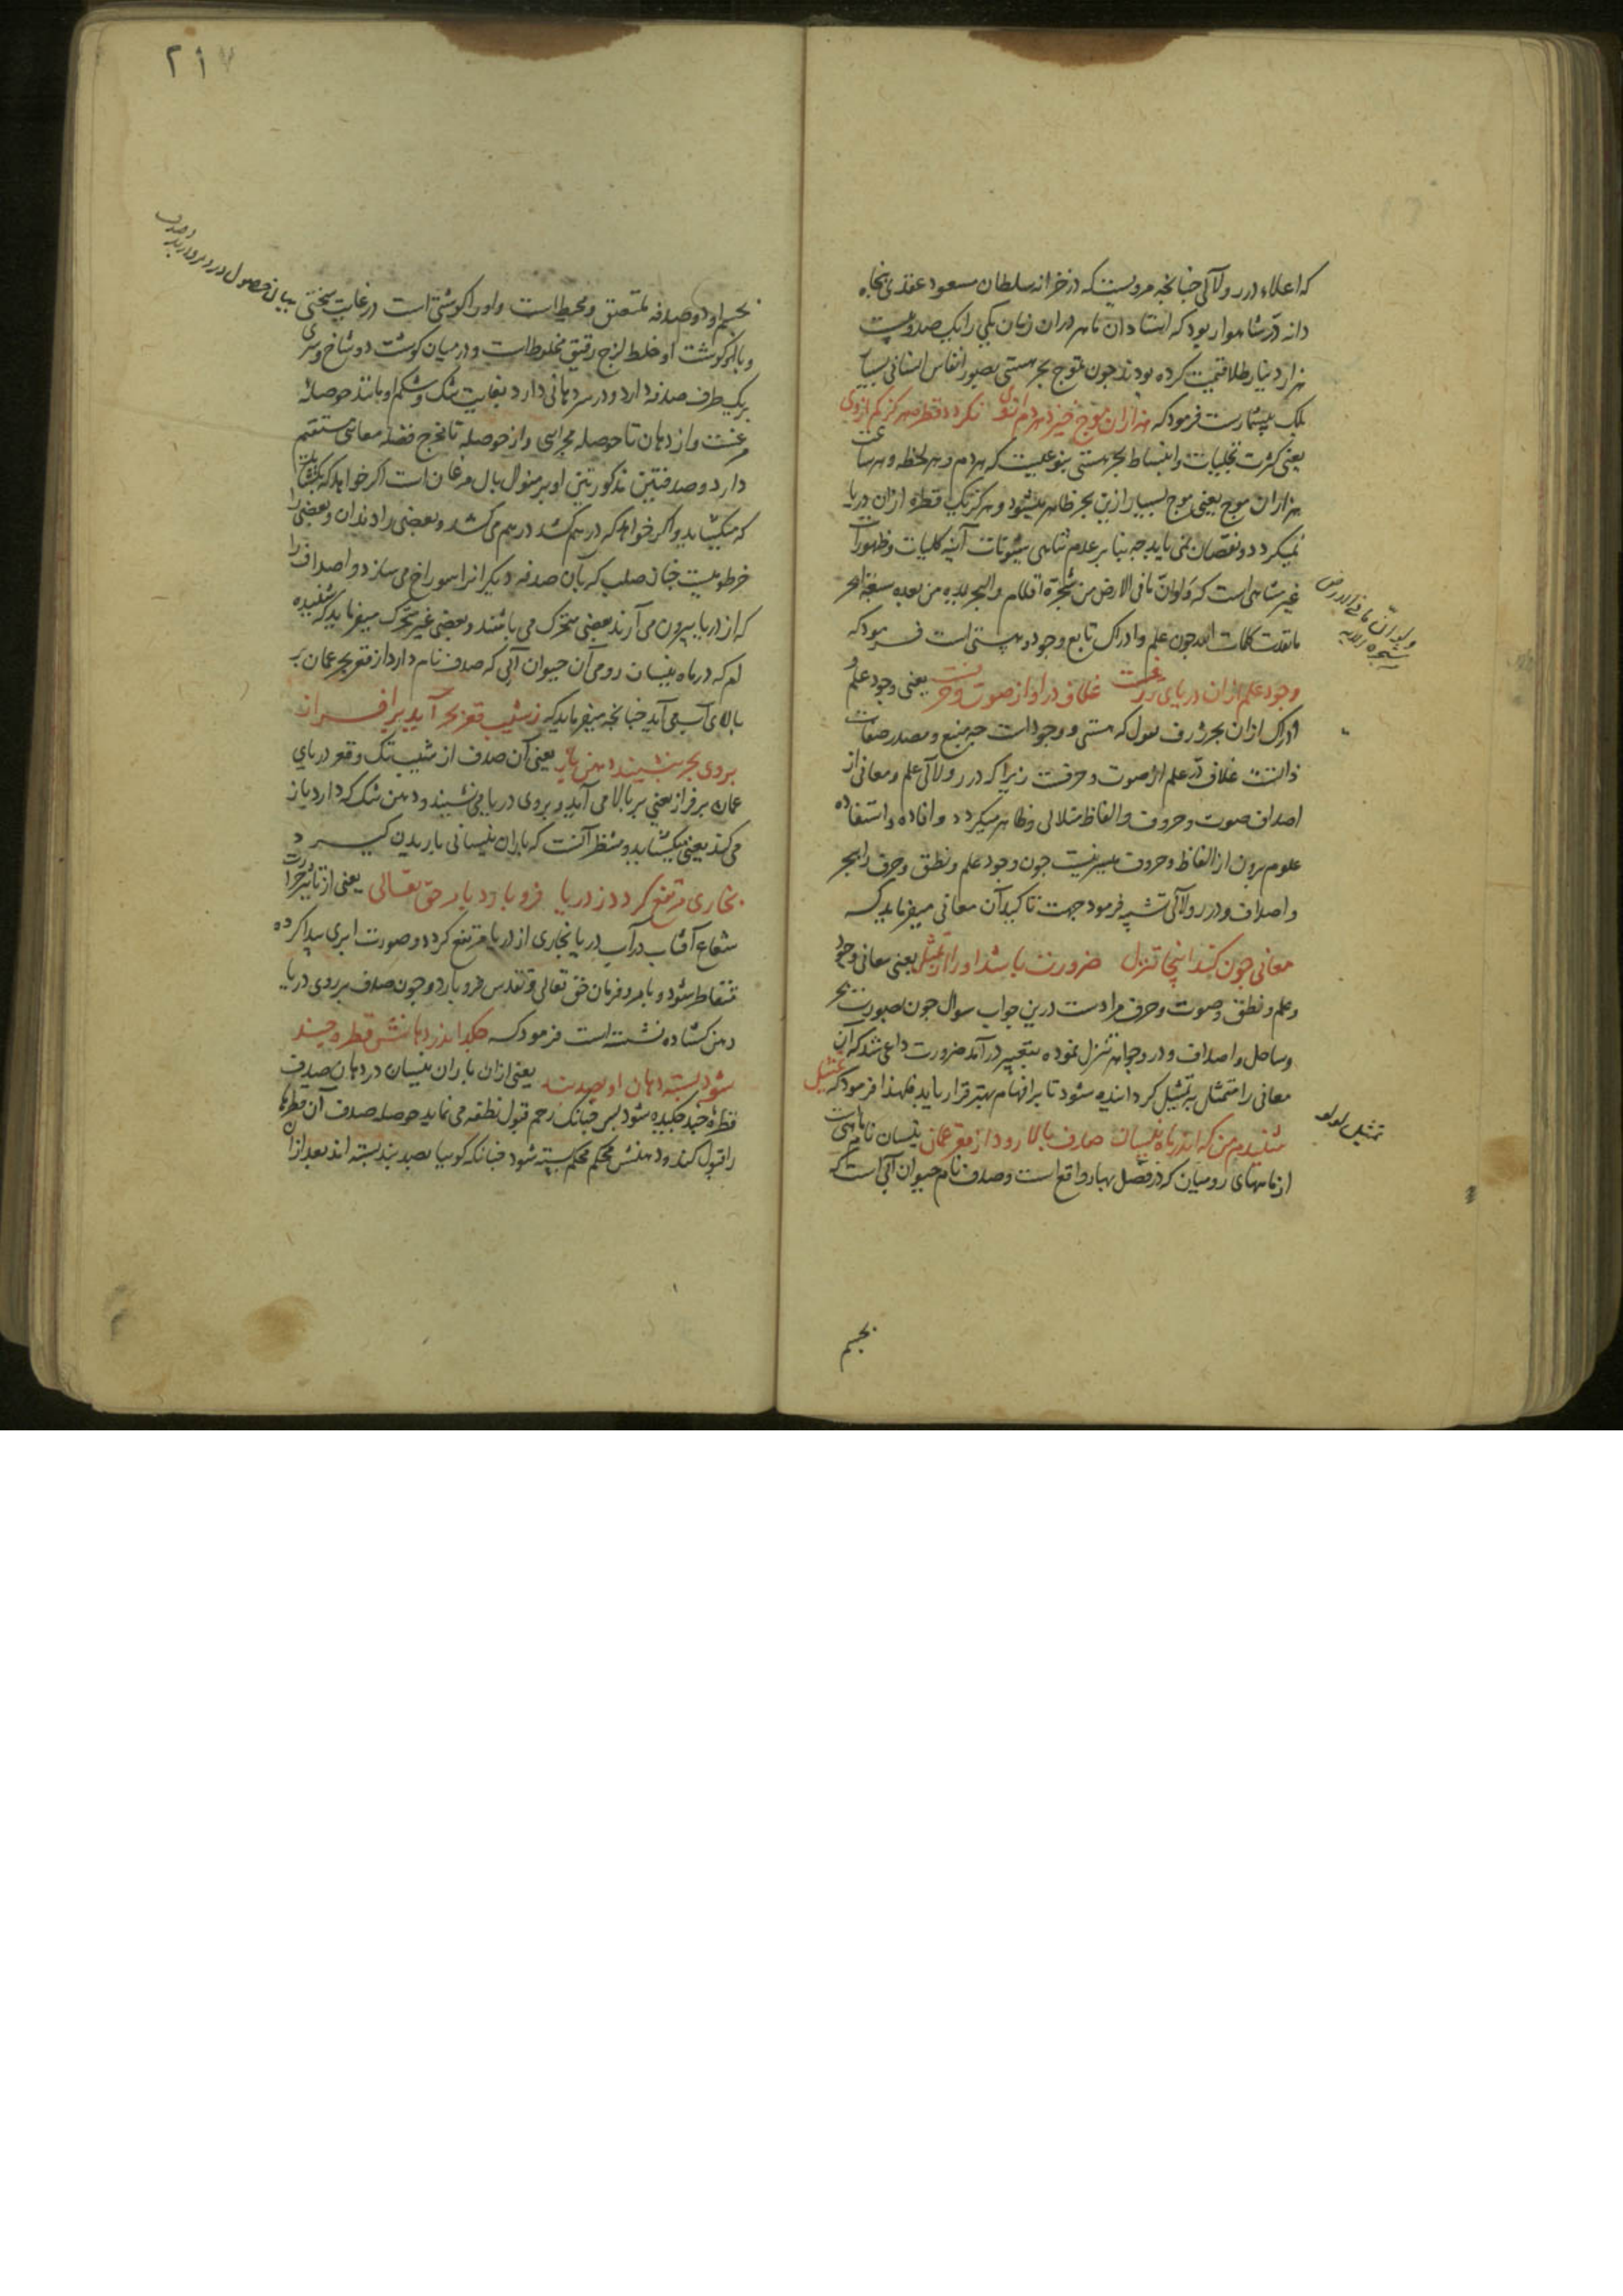 که اعلاء درر و لآلی چنانچه مرویست که در خزانه سلطان مسعود عقدی پنجاه
دانه در شاهوار بود که استادان ماهر در آن زمان یکی را یکصد و بیست
هزار دینار طلا قیمت کرده بودند چون تموج بحر هستی بصور انفاس انسانی بسیار
بلک بیشمارست فرمود که هزاران موج خیزد هر دم از وی نکردد قطره هرکز کم از وی
یعنی کثرت تجلیات و انبساط بحر هستی بنوعیست که هر دم و هر لحظه و هر ساعت
هزاران موج یعنی موج بسیار ازین بحر ظاهر میشود و هرکز یک قطره ازان دریا
نمیکردد و نقصان نمی یابد چه بنا بر عدم تناهی شئونات آینه کلیات و ظهورات
غیر متناهی است که ولو ان ما فی الارض من شجرة اقلام والبحر یمده من بعده سبعة ابحر
ما نفدت کلمات الله چون علم و ادراک تابع وجود و هستی است فرمود که
وجود علم ازان دریای ژرفست غلاف در او از صوت و حرفست یعنی وجود علم و
ادراک ازان بحر ژرف که هستی و وجود است چه منبع و مصدر صفات
ذاتست غلاف در علم از صوت و حرفست زیرا که درر و لآلی علم و معانی از
اصداف صوت و حروف و الفاظ متلالی و ظاهر میکردد و افاده و استفاده
علوم بدون از الفاظ و حروف میسر نیست چون وجود علم و نطق و حرف را ببحر
و اصداف و درر و لآلی تشبیه فرمود جهت تاکید آن معانی میفرماید که
معانی چون کند اینجا تنزل ضرورت باشد او را از تمثل یعنی معانی وجود
و علم و نطق و صوت و حرف مرادست درین جواب سوال چون بصورت بحر
و ساحل و اصداف و در و جواهر تنزل نموده بتعبیر در آمد ضرورت داعی شد که آن
معانی را متمثل بتمثیل کردانیده شود تا بر افهام بهتر قرار یابد فلهذا فرمود که تمثیل
شنیدم من که اندر ماه نیسان صدف بالا رود از قعر عمان نیسان نام ماهیست
از ماههای رومیان که در فصل بهار واقع است و صدف نام حیوان آبی است که
ولو ان ما فی الارض
من شجرة الآیه
تمثیل لولو
بجسم
۲۱۷
بیان حصول در و مروارید و صدف
بجسم او دو صدفه ملتصق و محیط است و او را کوشتی است در غایت سختی
و با کوشت او خلط لزج رقیق مخلوط است و در میان کوشت دو شاخ و سری
بر یک طرف صدفه دارد و در سر دهانی دارد بغایت تنک و شکم او مانند حوصله
مرغست و از دهان تا حوصله مجرایی و از حوصله تا مخرج فضله معای مستقیم
دارد و صدفتین مذکورتین او بر منوال بال مرغان است اکر خواهد که بکشاید
که میکشاید و اکر خواهد که در هم کشد در هم می کشد و بعضی را دندان و بعضی را
خرطومیست چنان صلب که بآن صدفه دیکرانرا سوراخ می سازد و اصداف را
که از دریا بیرون می آرند بعضی متحرک می باشند و بعضی غیر متحرک میفرماید که شنیده
ام که در ماه نیسان رومی آن حیوان آبی که صدف نام دارد از قعر بحر عمان بر
بالای آب می آید چنانچه میفرماید که ز شیب قعر بحر آید بر افراز
بروی بحر بنشیند دهن باز یعنی آن صدف از شیب تک و قعر دریای
عمان بر فراز یعنی بر بالا می آید و بروی دریا می نشیند و دهن تنک که دارد باز
می کند یعنی میکشاید و منتظر آنست که باران نیسانی باریدن کیرد
بخاری مرتفع کردد ز دریا فرو بارد بامر حق تعالی یعنی از تاثیر حرارت
شعاع آفتاب در آب دریا بخاری از دریا مرتفع کردد و صورت ابری پیدا کرده
متقاطر شود و بامر و فرمان حق تعالی و تقدس فرو بارد و چون صدف بر روی دریا
دهن کشاده نشسته است فرمود که چکد اندر دهانش قطره چند
شود بسته دهان او بصد بند یعنی ازان باران نیسان در دهان صدف
قطره چند چکیده شود پس چنانک رحم قبول نطفه می نماید حوصله صدف آن قطرها
را قبول کند و دهنش محکم محکم بسته شود چنانکه کوییا بصد بند بسته اند بعد ازان